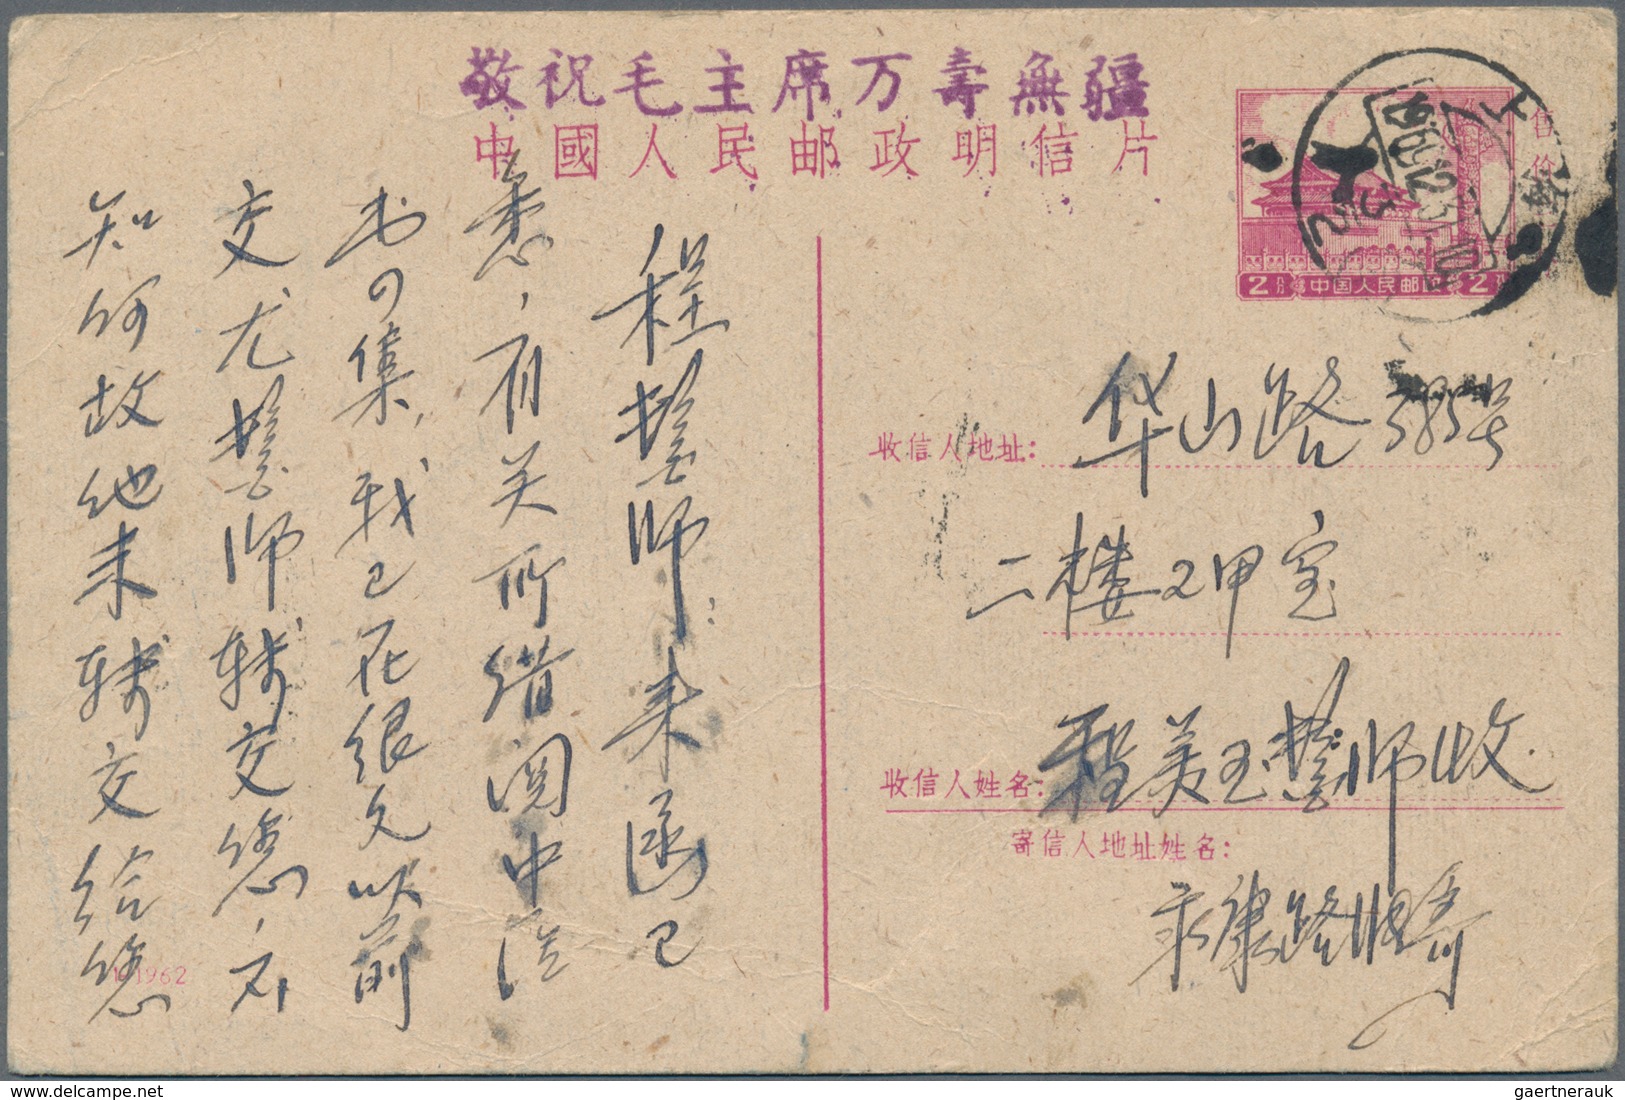 敬祝毛主席万壽無疆
中國人民邮政明信片
售价
2分 中国人民邮政 2
上海
收信人地址：
华山路585号
二楼2甲室
收信人姓名：
程美玉医师收
寄信人地址姓名：
永康路
程医师：来函已
悉，有关所借阅中医
书の集，我已在很久以前
交尤医师转交您，不
知何故他未转交给您
1962
gaertnerauk